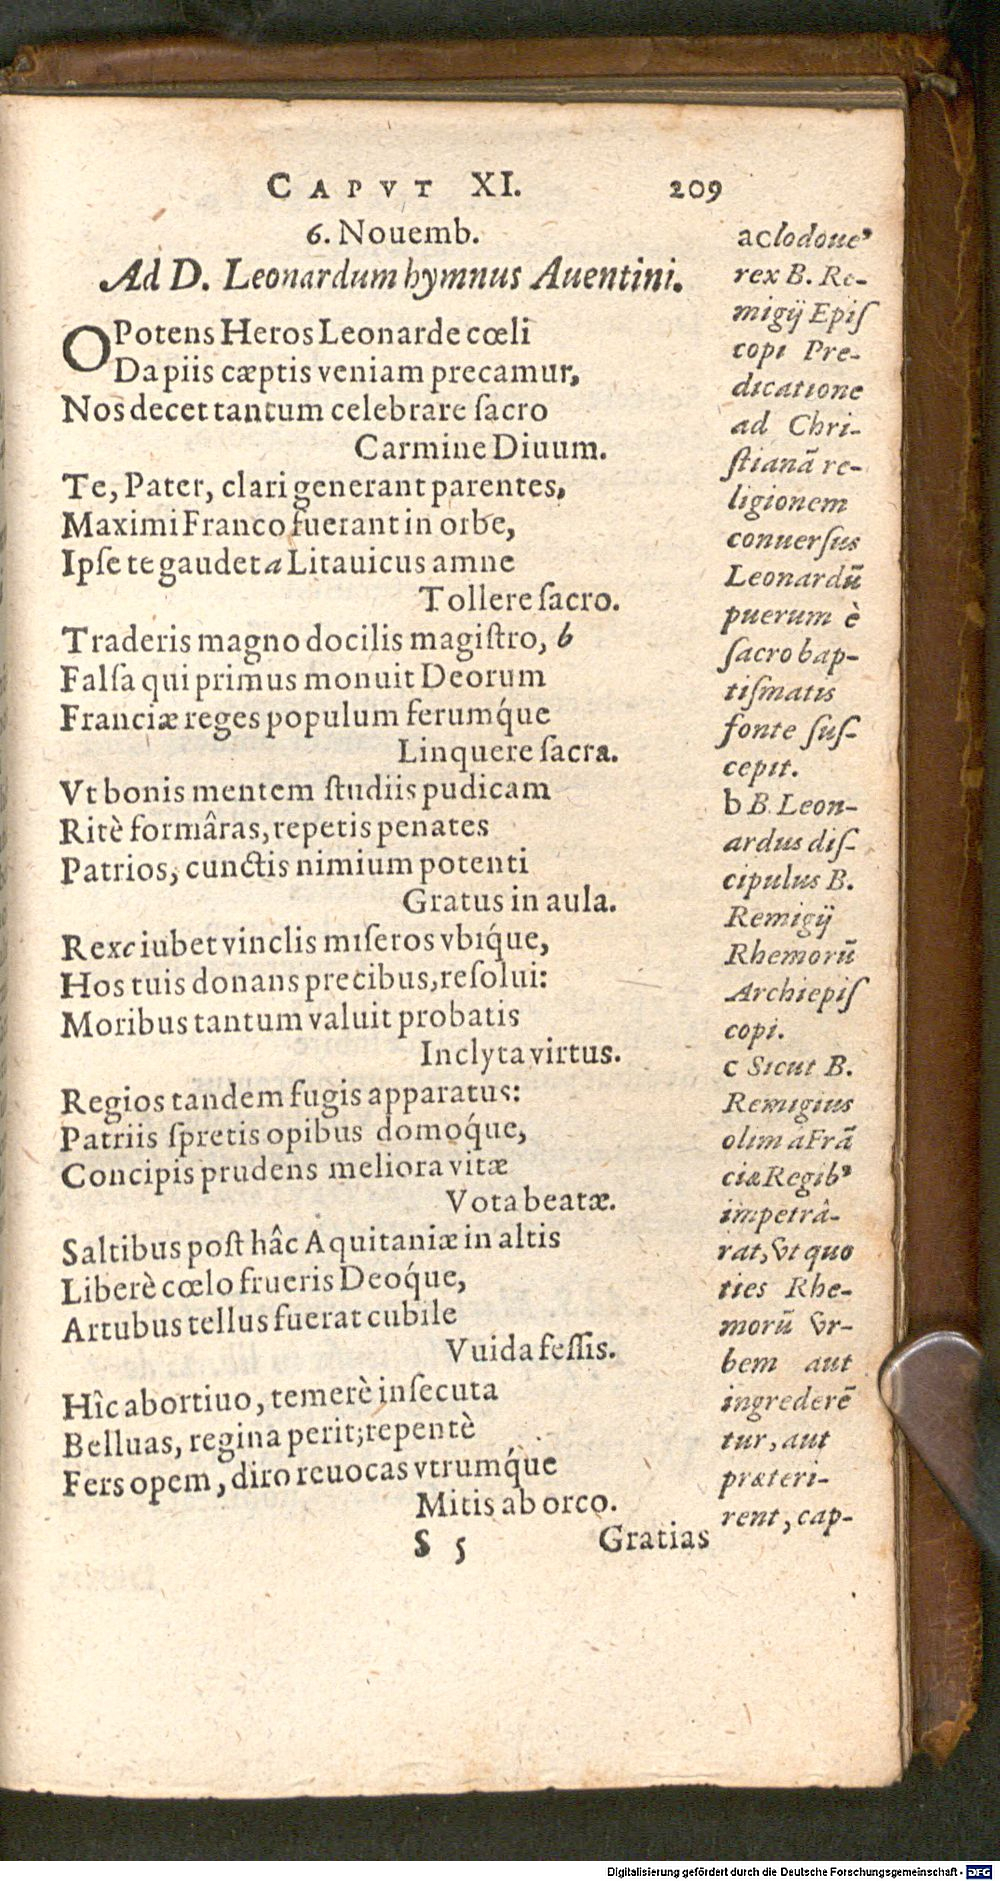 CAPVT XI. 209
6. Nouemb.
Ad D. Leonardum hymnus Auentini.
O Potens Heros Leonarde cœli
Da piis cæptis veniam precamur,
Nos decet tantum celebrare ſacro
Carmine Diuum.
Te, Pater, clari generant parentes,
Maximi Franco fuerant in orbe,
Ipſe te gaudet a Litauicus amne
Tollere ſacro.
Traderis magno docilis magiſtro, b
Falſa qui primus monuit Deorum
Franciæ reges populum ferumq́ue
Linquere ſacra.
Vt bonis mentem ſtudiis pudicam
Ritè formâras, repetis penates
Patrios, cunctis nimium potenti
Gratus in aula.
Rex c iubet vinclis miſeros vbiq́ue,
Hos tuis donans precibus, reſolui:
Moribus tantum valuit probatis
Inclyta virtus.
Regios tandem fugis apparatus:
Patriis ſpretis opibus domoq́ue,
Concipis prudens meliora vitæ
Vota beatæ.
Saltibus poſt hâc Aquitaniæ in altis
Liberè cœlo frueris Deoq́ue,
Artubus tellus fuerat cubile
Vuida feſſis.
Hîc abortiuo, temerè inſecuta
Belluas, regina perit; repentè
Fers opem, diro reuocas vtrumq́ue
Mitis ab orco.
S 5 Gratias
a Clodoueꝰ
rex B. Re-
migij Epiſ
copi Pre-
dicatione
ad Chri-
ſtianã re-
ligionem
conuerſus
Leonardũ
puerum è
ſacro bap-
tiſmatis
fonte ſuſ-
cepit.
b B. Leon-
ardus diſ-
cipulus B.
Remigij
Rhemorũ
Archiepiſ
copi.
c Sicut B.
Remigius
olim a Frã
ciæ Regibꝰ
impetrâ-
rat, vt quo
ties Rhe-
morũ vr-
bem aut
ingrederẽ
tur, aut
præteri-
rent, cap-
Digitalisierung gefördert durch die Deutsche Forschungsgemeinschaft - DFG